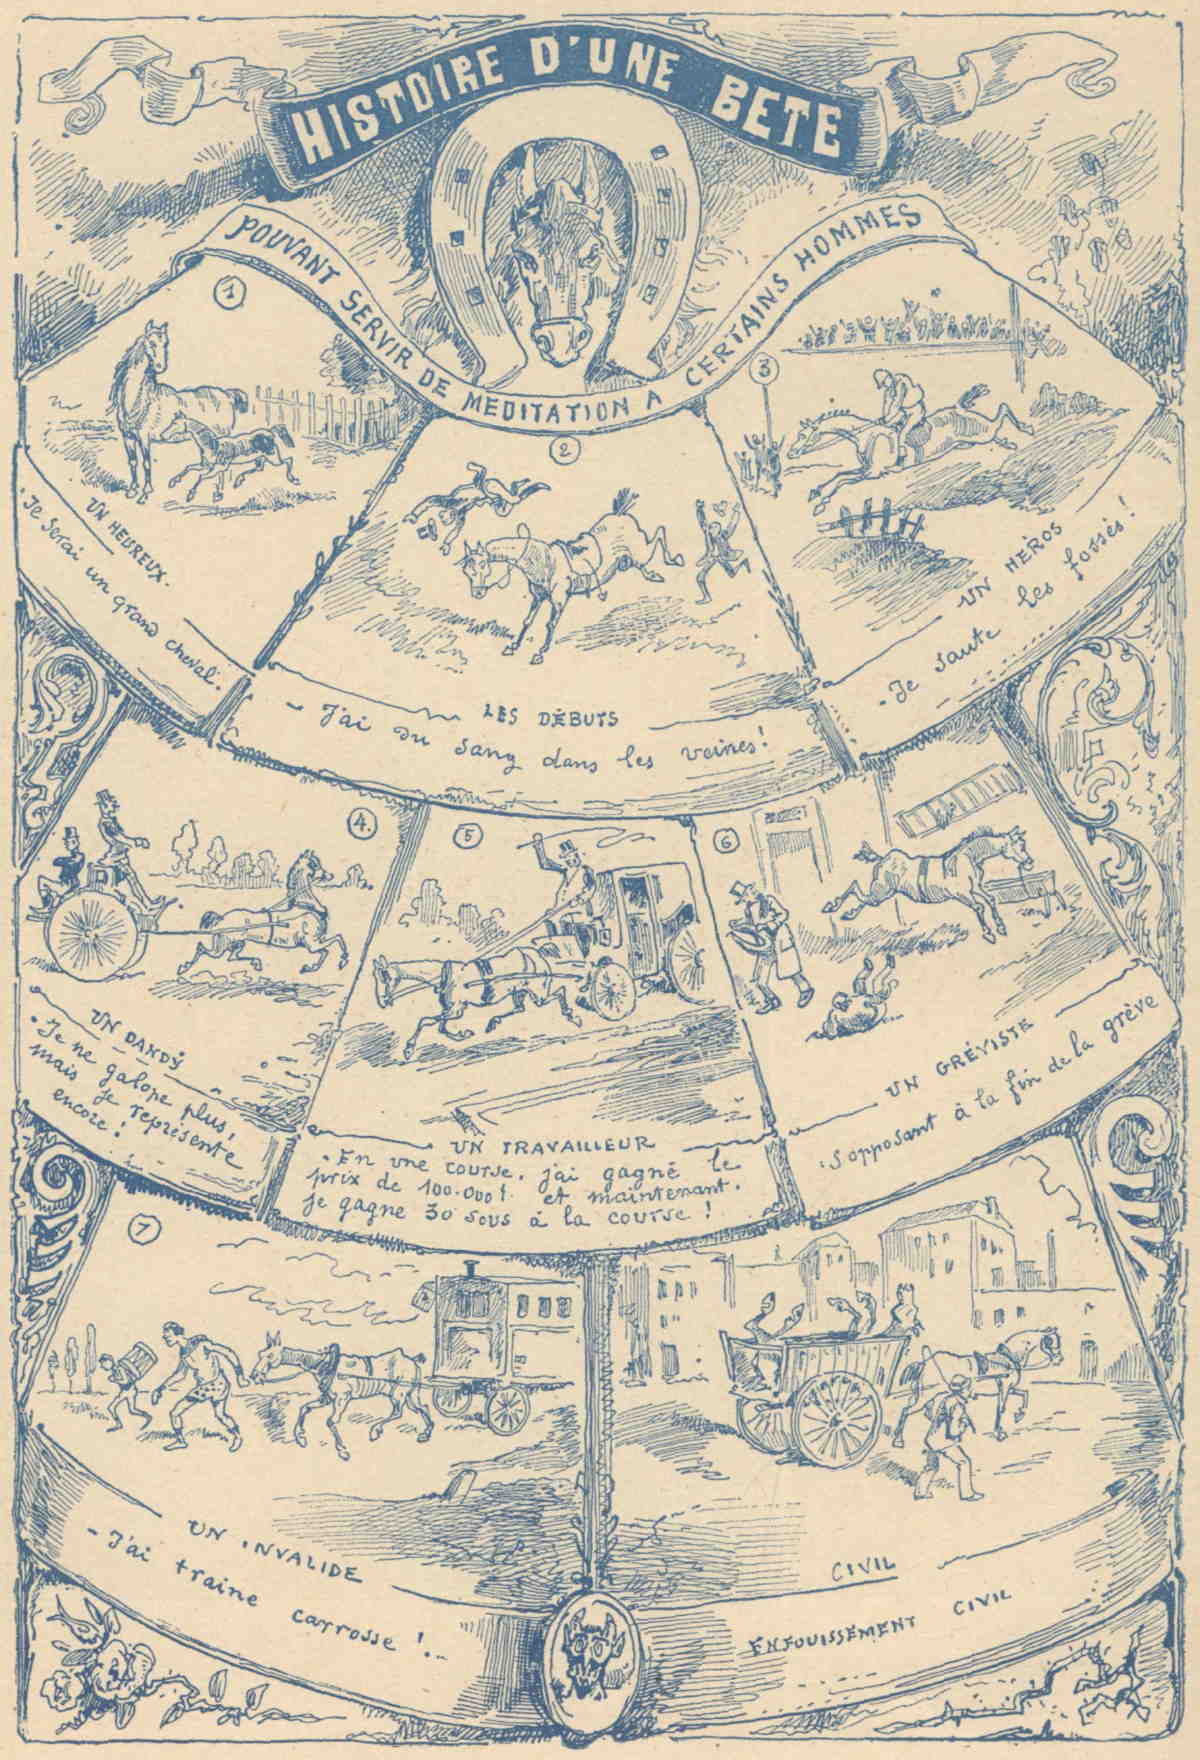 HISTOIRE D'UNE BETE
POUVANT SERVIR DE MEDITATION A CERTAINS HOMMES
1
UN HEUREUX.
Je serai un grand cheval.
2
LES DÉBUTS
- J'ai du sang dans les veines!
3
UN HEROS
- Je saute les fossés!
4.
UN DANDY
- Je ne galope plus,
mais je représente
encore!
5
UN TRAVAILLEUR
- En une course, j'ai gagné le
prix de 100.000f. et maintenant.
je gagne 30 sous à la course!
6
UN GRÉVISTE
S'opposant à la fin de la grève
7
UN INVALIDE
- J'ai traine carrosse!..
CIVIL
ENFOUISSEMENT CIVIL